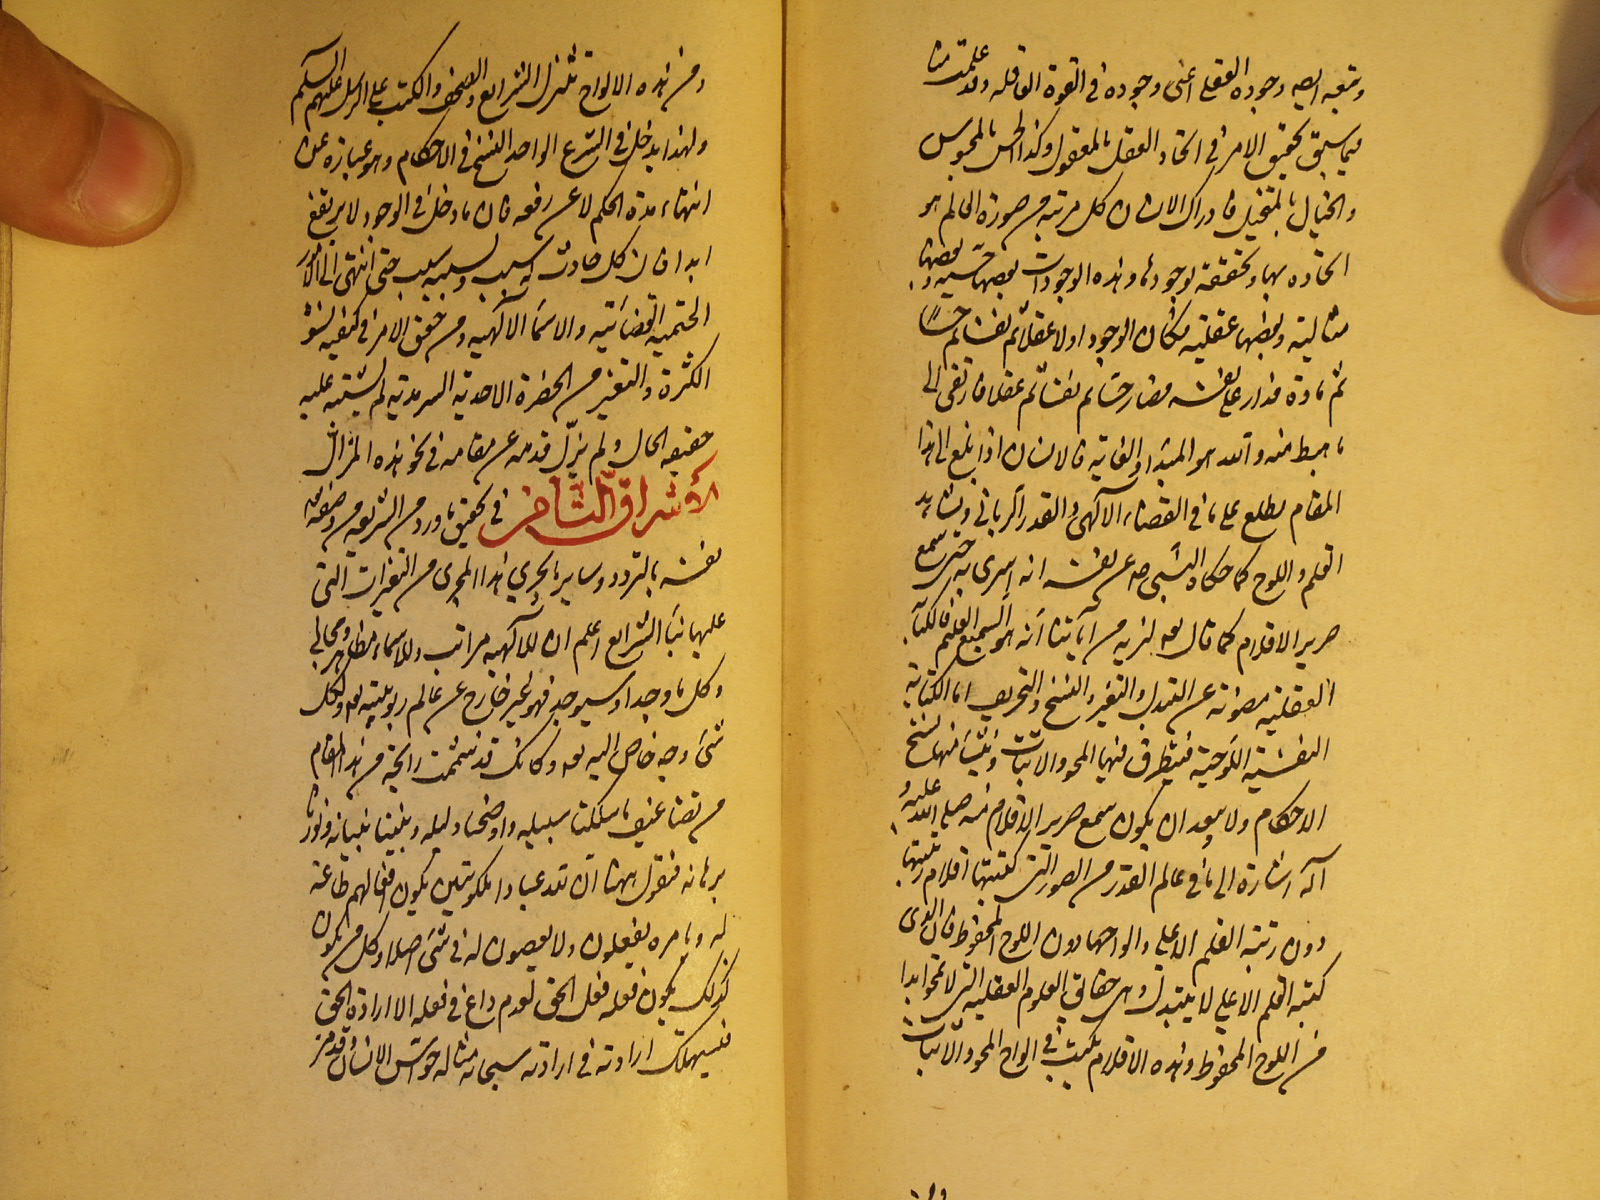 وتتبعه ايضا وجوده العقلي اعنى وجوده فى القوة العاقلة وقد علمت منا
فيما سبق تحقيق الامر فى اتحاد العقل بالمعقول وكذا الحس بالمحسوس
والخيال بالمتخيل فادراك الانسان كل مرتبة من صورة العالم هو
اتحاده بها وتحققه بوجودها وهذه الوجودات بعضها حسية وبعضها
مثالية وبعضها عقلية فكان الوجود اولا عقلا ثم نفسا ثم حسا
ثم مادة فدار على نفسه فصار حسا ثم نفسا ثم عقلا فارتقى الى
ما هبط منه والله هو المبتدأ والغاية فالانسان اذا بلغ الى هذا
المقام يطلع على ما فى القضاء الآلهى والقدر الربانى ويشاهد
القلم واللوح كما حكاه النبى صه عن نفسه انه اسرى به حتى سمع
صرير الاقلام كما قال تعه لنريه من آياتنا انه هو السميع العليم فالكتابة
العقلية مصونة عن التبدل والتغير والنسخ والتحريف اما الكتابة
النفسية اللوحية فيتطرق فيها المحو والاثبات وينشأ منها نسخ
الاحكام ولا يبعد ان يكون سمع صرير الاقلام منه صلى الله عليه و
آله اشارة الى ما فى عالم القدر من الصور التى كتبتها اقلام رتبتها
دون رتبة القلم الاعلى والواحها دون اللوح المحفوظ فان الذى
كتبه القلم الاعلى لا يتبدل وهى حقايق العلوم العقلية التى لا تمحو ابدا
من اللوح المحفوظ وهذه الاقلام يكتب فى الواح المحو والاثبات
ومن هذه الالواح تنزل الشرايع والصحف والكتب على الرسل عليهم السلم
ولهذا يدخل فى الشرع الواحد النسخ فى الاحكام وهو عبارة عن
انتهاء مدة الحكم لا عن رفعه فان ما دخل فى الوجود لا يرتفع
ابدا فان كل حادث له سبب ولسببه سبب حتى انتهى الى الامور
الحتمية القضائية والاسماء الآلهية ومن حقق الامر فى كيفية نشو
الكثرة والتغير من الحضرة الاحدية السرمدية لم يشتبه عليه
حقيقة الحال ولم يزل قدمه عن مقامه فى نحو هذه المزال
الأشراق الثامن فى تحقيق ما ورد من الشريعة من وصفه
نفسه بالتردد وساير ما يجرى هذا المجرى من التغيرات التى
عليها نبأ الشرايع اعلم ان للآلهية مراتب وللاسماء مظاهر ومجالى
وكل ما وجد او سيوجد فهو غير خارج عن عالم ربوبيته تعه ولكل
شئ وجه خاص اليه تعه وكانك قد شممت رايحة من هذا المقام
من تضاعيف ما سلكنا سبيله واوضحنا دليله وبنينا بنيانه ونورنا
برهانه فنقول ههنا ان لله عبادا ملكوتيين يكون افعالهم طاعة
له وبامره يفعلون ولا يعصون له فى شئ اصلا وكل من يكون
كذلك يكون فعله فعل الحق لعدم داع فى فعله الا ارادة الحق
فيستهلك ارادته فى ارادته سبحانه مثاله حواس الانسان وقد مر